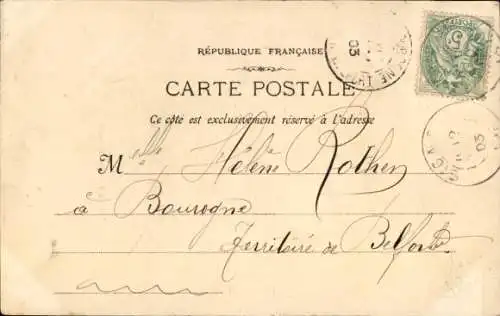 RÉPUBLIQUE FRANÇAISE
CARTE POSTALE
Ce côté est exclusivement réservé à l'adresse
Mlle Hélène Rothen
à Bourogne
Territoire de Belfort
03
5
03